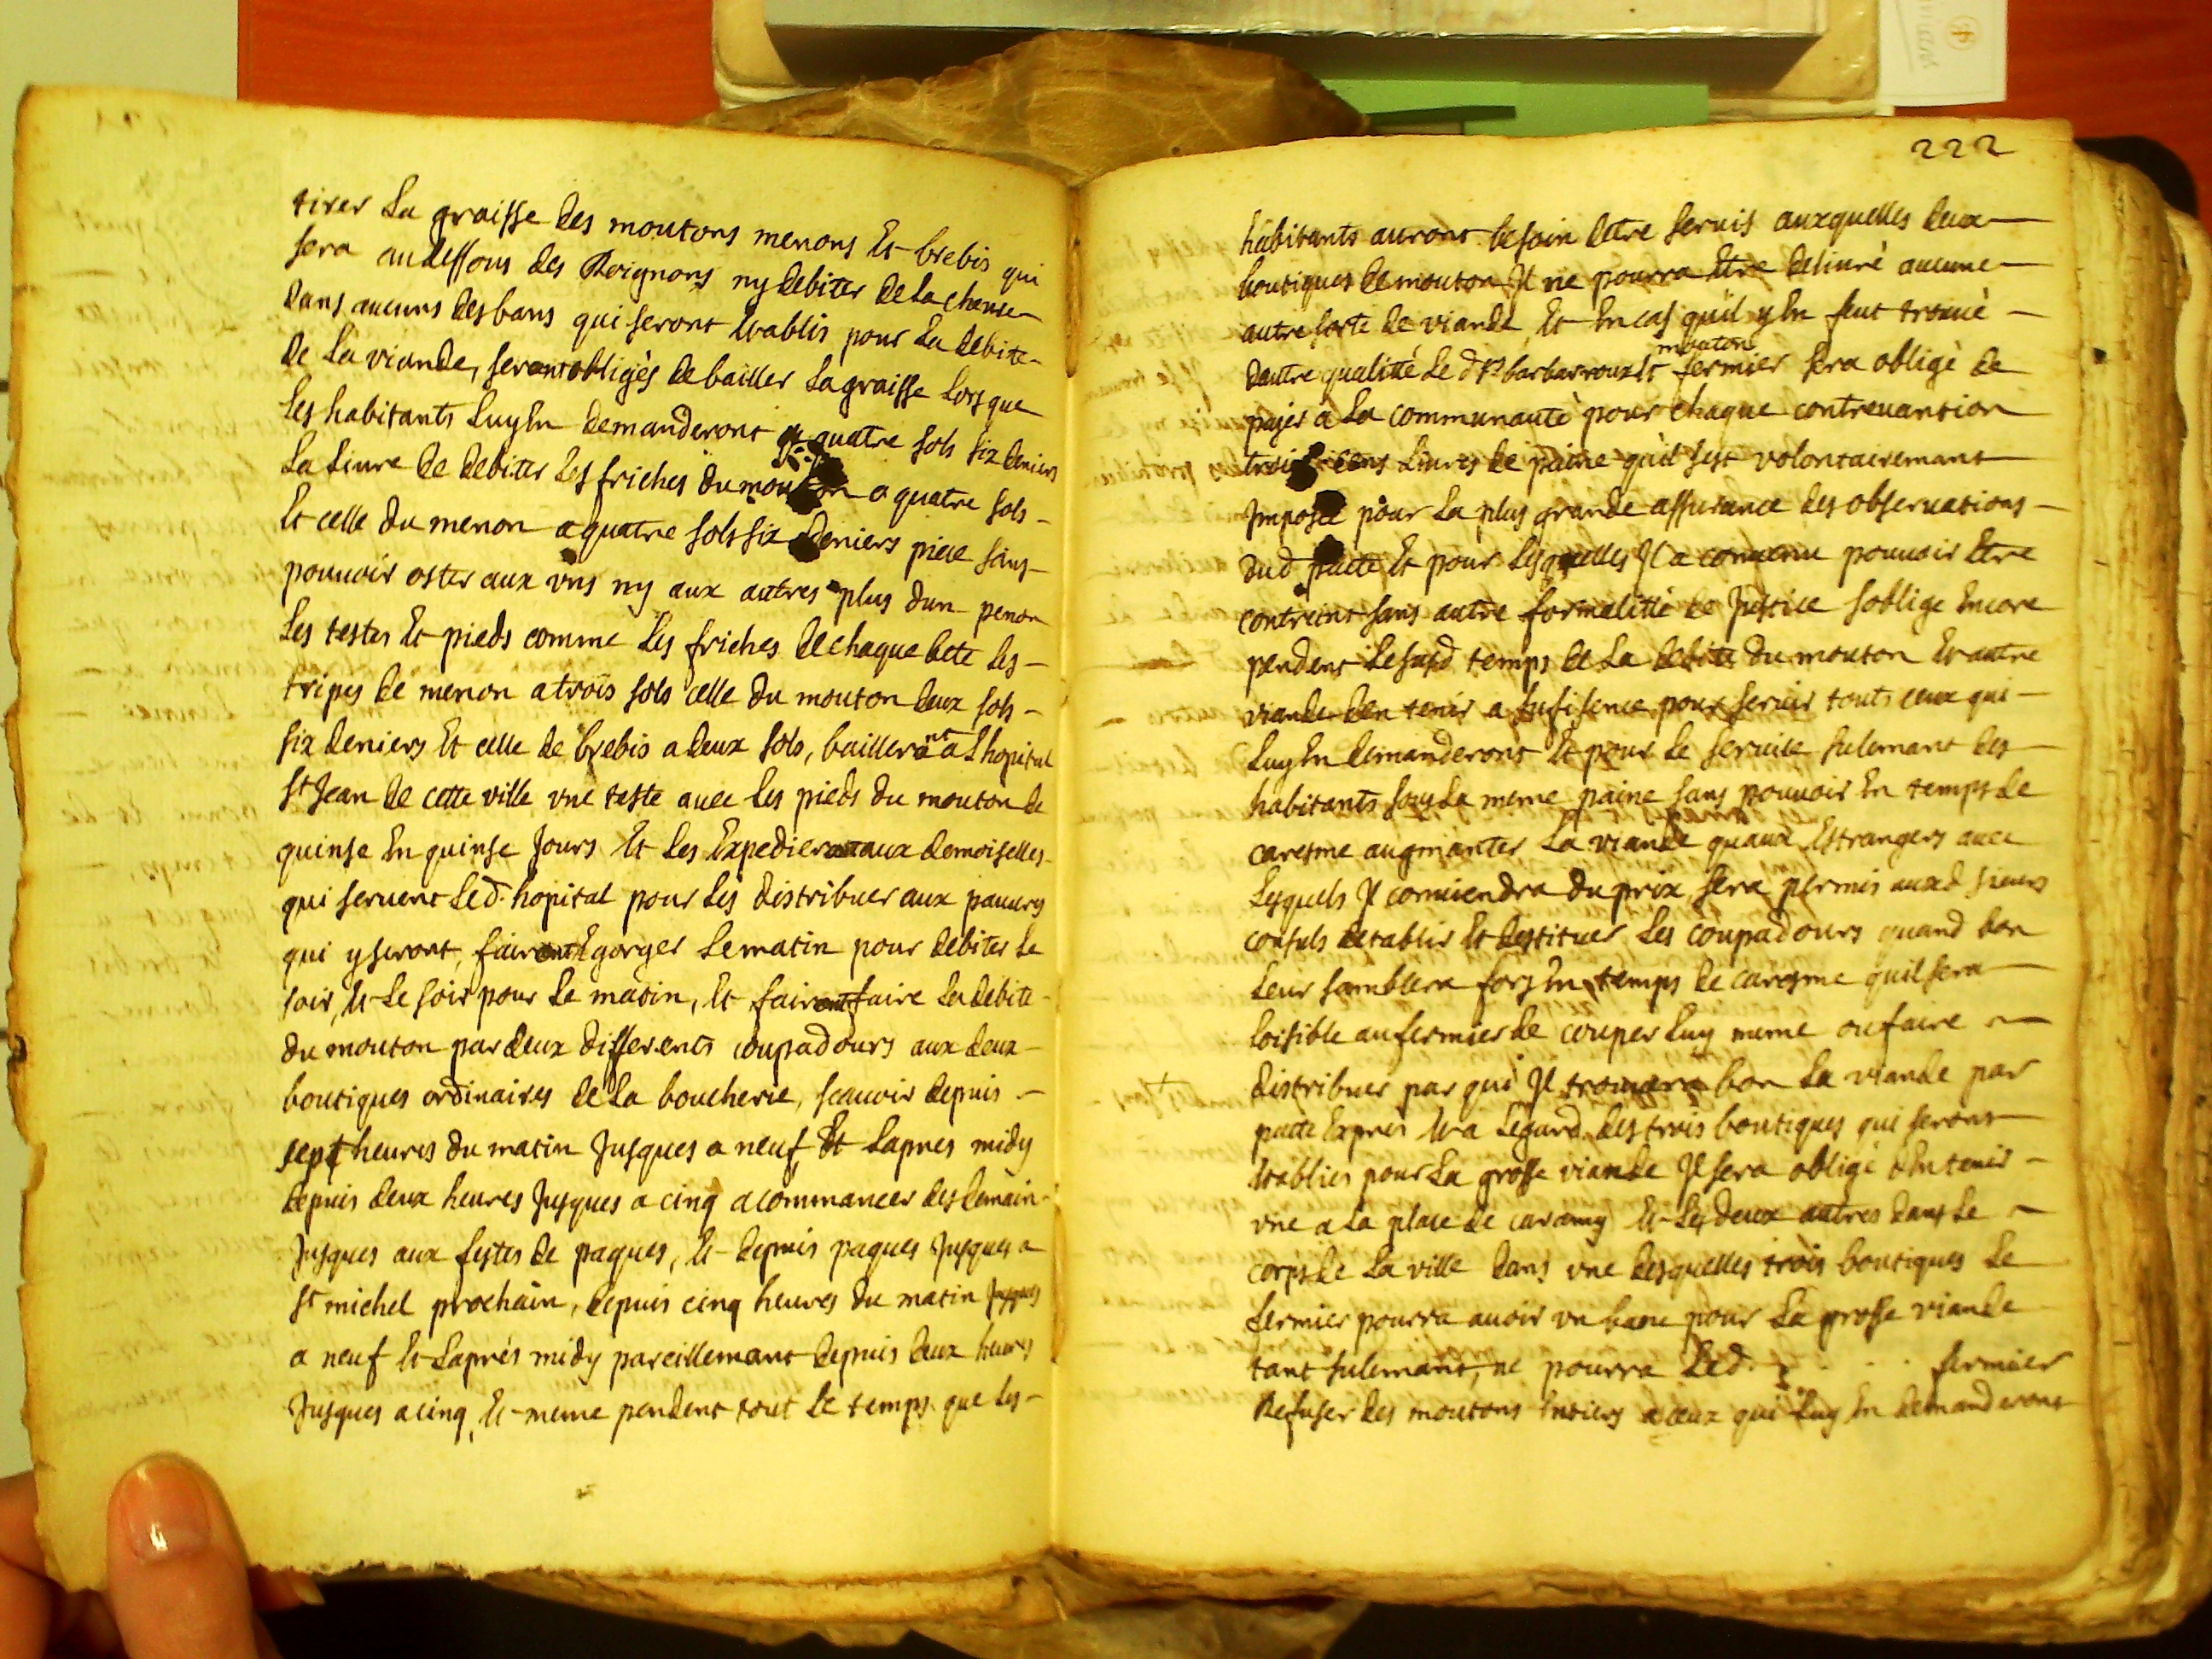 tirer La graisse des moutons menons Et brebis qui
sera audessous des Roignons ny debiter de La cheure
dans aucuns des bans qui seront Etablis pour La debite
de La viande, serontobligès de bailler La graisse Lors que
Les habitants Luy En demanderont a quatre sols six deniers
La Liure de debiter Les friches du mouton a quatre sols
Et celle du menon a quatre sols six deniers piece sans
pouuoir oster aux vns ny aux autres plus dun penon
Les testes Et pieds comme Les friches de chaque bete Les
tripes de menon a trois sols celle du mouton deux sols
six deniers Et celle de brebis a deux sols, bailleront a Lhopital
St Jean de cette ville vne teste auec Les pieds du mouton de
quinse En quinse Jours Et Les Expedieront aux demoiselles
qui seruent Led. hopital pour Les distribuer aux pauures
qui y seront, fairont Egorger Le matin pour debiter Le
soir, Et Le soir pour Le matin, Et fairont faire La debite
du mouton par deux differents coupadours aux deux
boutiques ordinaires de La boucherie, scauoir depuis
sept heures du matin Jusques a neuf Et Lapres midy
depuis deux heures Jusques a cinq a commancer des demain
Jusques aux festes de paques, Et depuis paques Jusques a
St michel prochain, depuis cinq heures du matin Jusques
a neuf Et Laprés midy pareillemant depuis deux heures
Jusques a cinq, Et meme pendent tout Le temps que Les
222
habitants auront besoin detre seruis auxquelles deux
boutiques de mouton Il ne pourra Etre deliurè aucune
autre sorte de viande, Et En cas quil y En feut trouuè
mouton
dautre qualitté Le d. Sr barbarroux Et fermier sera obligè de
payer a La communautè pour chaque contreuantion
trois cens Liures de paine quil sest volontairemant
Imposée pour La plus grande assurance des obseruations
dud. pacte Et pour Lesquelles Il a conuenu pouuoir Etre
contreint sans autre formalittè de Justice soblige Encore
pendent Le susd. temps de La debite du mouton Et autre
viande den tenir a sufisence pour seruir touts ceux qui
Luy En demanderont Et pour Le seruice sulemant des
habitants sous La meme paine sans pouuoir En temps de
caresme augmanter La viande quaux Estrangers auec
Lesquels Il conuiendra du prix, sera permis auxd. sieurs
consuls detablir Et destituer Les coupadours quand bon
Leur samblera fors En temps de caresme quil sera
loisible au fermier de couper Luy meme ou faire
distribuer par qui Il trouuera bon La viande par
pacte Exprés Et a Legard des trois boutiques qui seront
Etablies pour La grosse viande Il sera obligé dEn tenir
vne a La place de caramy Et Les deux autres dans Le
corps de La ville dans vne desquelles trois boutiques Le
fermier pourra auoir vn banc pour La grosse viande
tant sulemant, ne pourra Led. fermier
Refuser des moutons Entiers a ceux qui Luy En demanderont